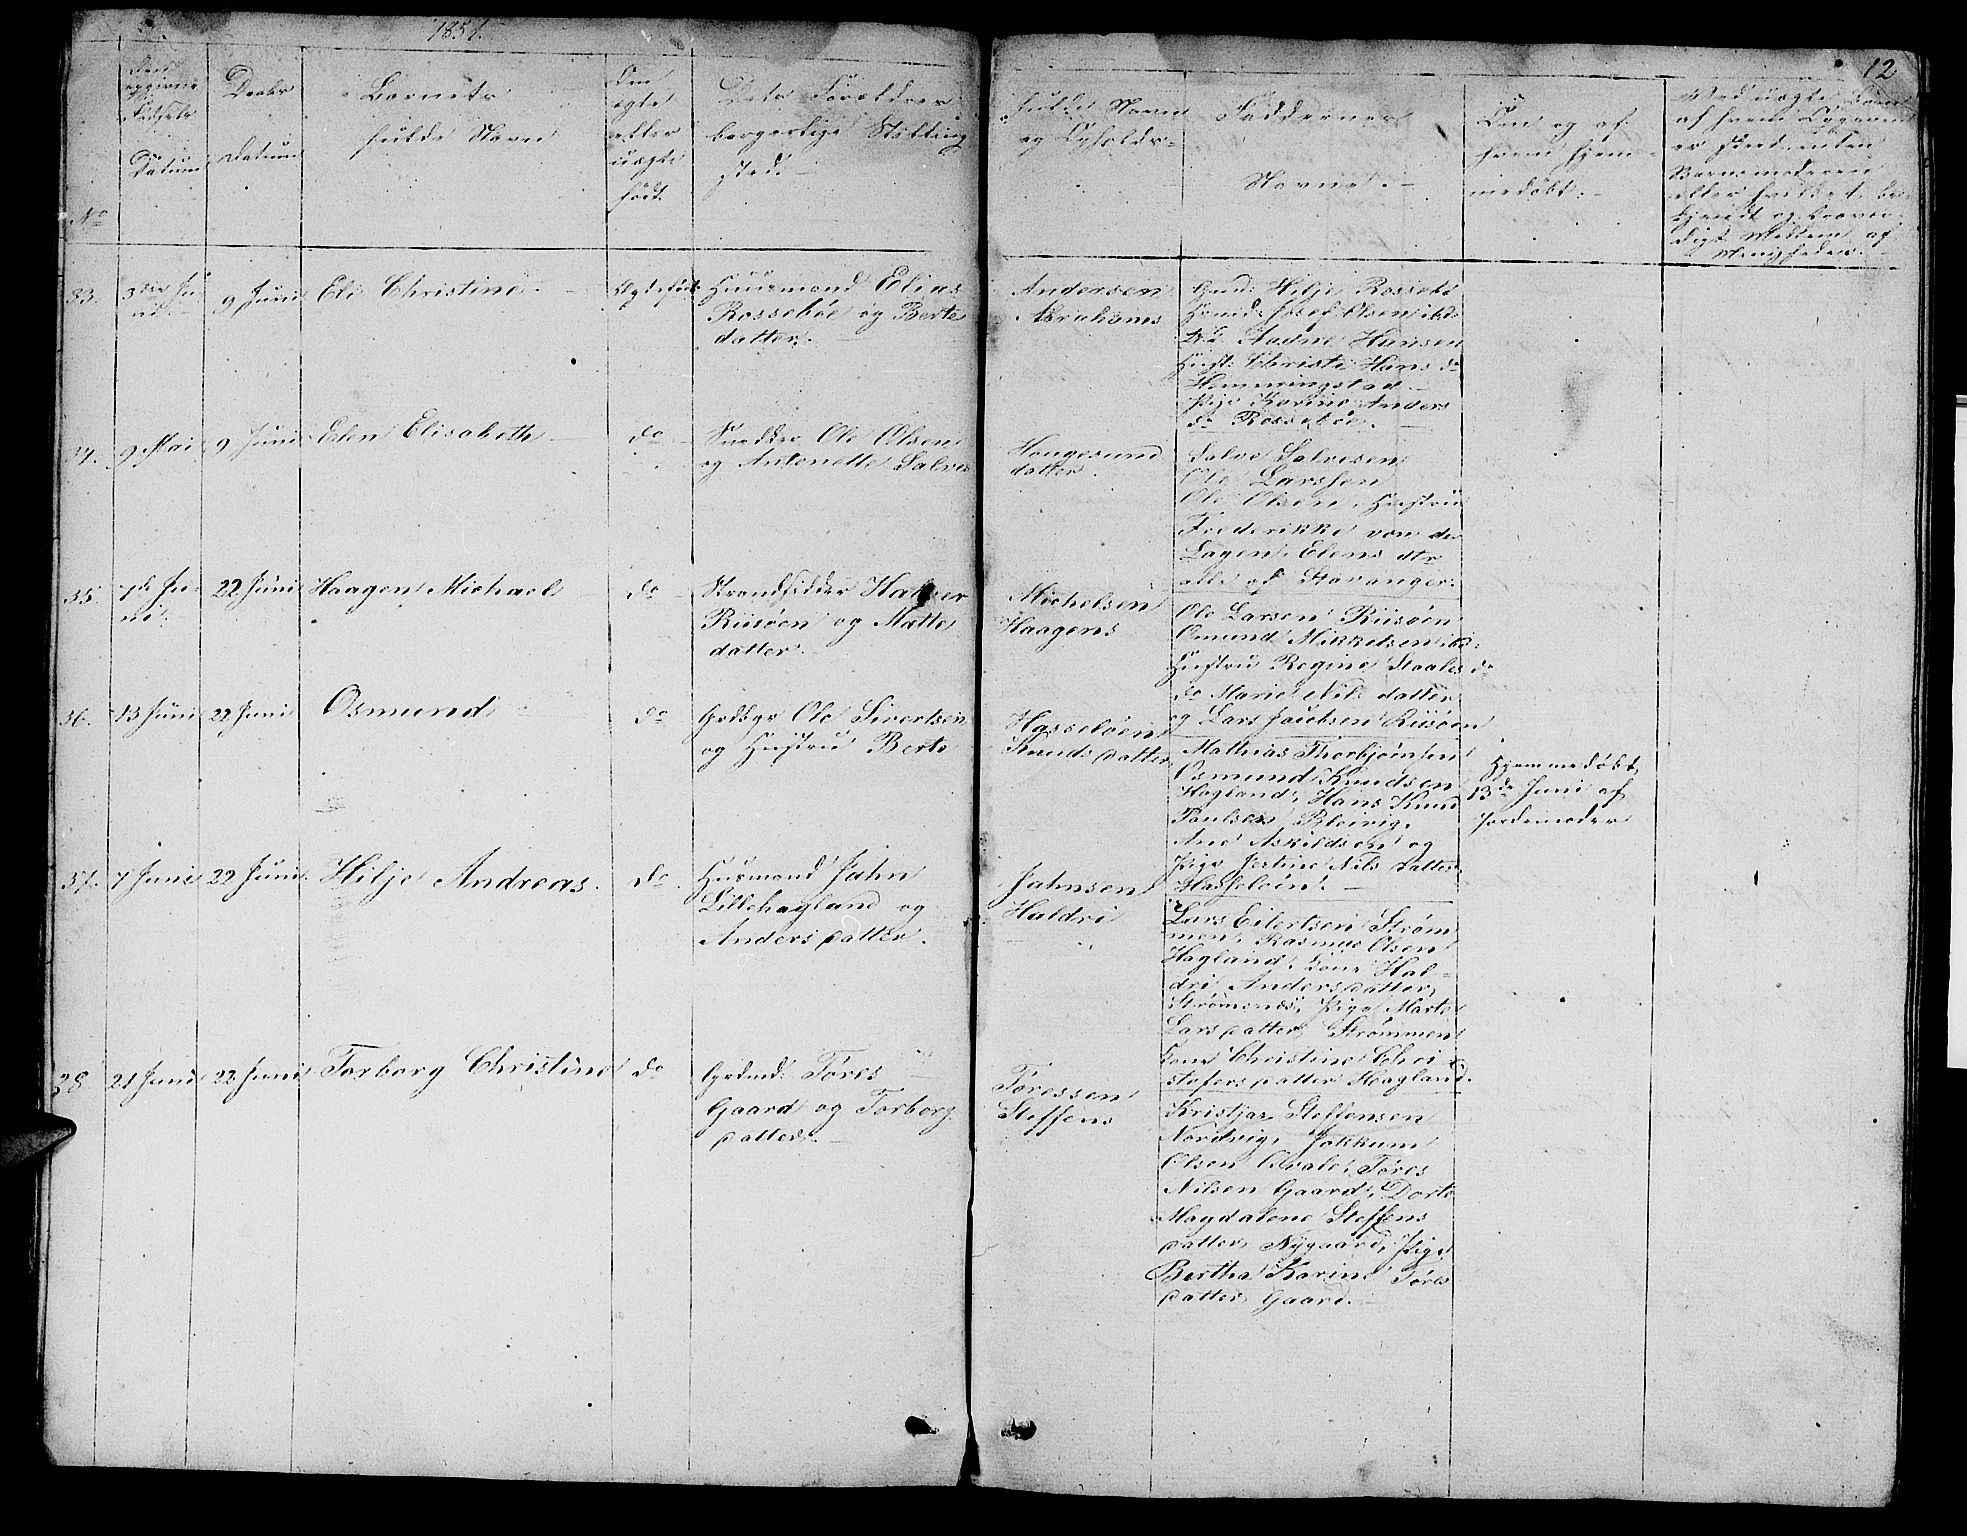 1851.
12
No
Den
opgivne
Fødsels
Datum
Daabs
Datum
Barnets
fulde Navn
Om
ægte
eller
uægte
født.
Dets Forældres
borgerlige Stilling
sted.
fulde Navn
og Opholds-
Faddernes
Navne.
Om og af
hvem hjem-
medøbt.
33.
3die Ju-
ni.
9 Juni
Eli Christine
Ægtefødt
Huusmand Elias
Rossebøe og Berte
datter.
Andersen
Abrahams
Gmd: Hilje Rossebø
Huusmd: Josef Olsen ibd:
Hustr: Christi Hans d:
Hemmingstad
Pige Karine Anders
do Rossebøe.
34.
9 Mai
9 Juni
Elen Elisabeth
do
Snedker Ole Olsen
og Antonette Salves
Haugesund
datter.
Salve Salvesen
Ole Larssen
Ole Olsen, Hustru
Frederikke von der
Lagen, Elens dtr
alle af Stavanger.
35.
7de Ju-
ni.
22 Juni
Haagen Michael
do
Strandsidder Halvor
Riisøen og Mætte
datter.
Michelsen
Haagens
Ole Larsen Riisøen
Osmund Mikkelsen ibd:
Hustru Regine Staales do
do Marie Nils datter
og Lars Jacobsen Riisøen
36.
13 Juni
22 Juni
Osmund
do
Grdbgr Ole Sivertsen
og Hustru Berte
Hasseløen
Knuds datter
Mathias Thorbjønsen
Osmund Knudsen
Hagland, Hans Knud
Paulsen Bleivig,
Ane Askildsen og
Pige Jertine Nils datter
Hasseløen.
Hjemmedøbt
13de Juni af
Jordemoder
37.
7 Juni
22 Juni
Hilje Andreas.
do.
Husmand Jahn
Lillehagland og
Anders datter.
Jahnsen
Haldri
Lars Eilertsen Strøm
men, Rasmus Olsen
Hagland, Kone Hal-
dri Anders datter,
Strømmen, Pige Marte
Lars datter, Strømmen
Kone Christine Chri-
stofers datter Hagland.
38
21 Juni
22 Juni
Torborg Christine
do
Grdmd: Tøres
Gaard og Torborg
datter.
Tøressen
Steffens
Kristjan Steffensen
Nordvig, Jokkum
Olsen Qvale, Tøres
Nilsen Gaard, Dorte
Magdalene Steffens
datter Nygaard, Pige
Bertha Karine Tøres
datter Gaard.